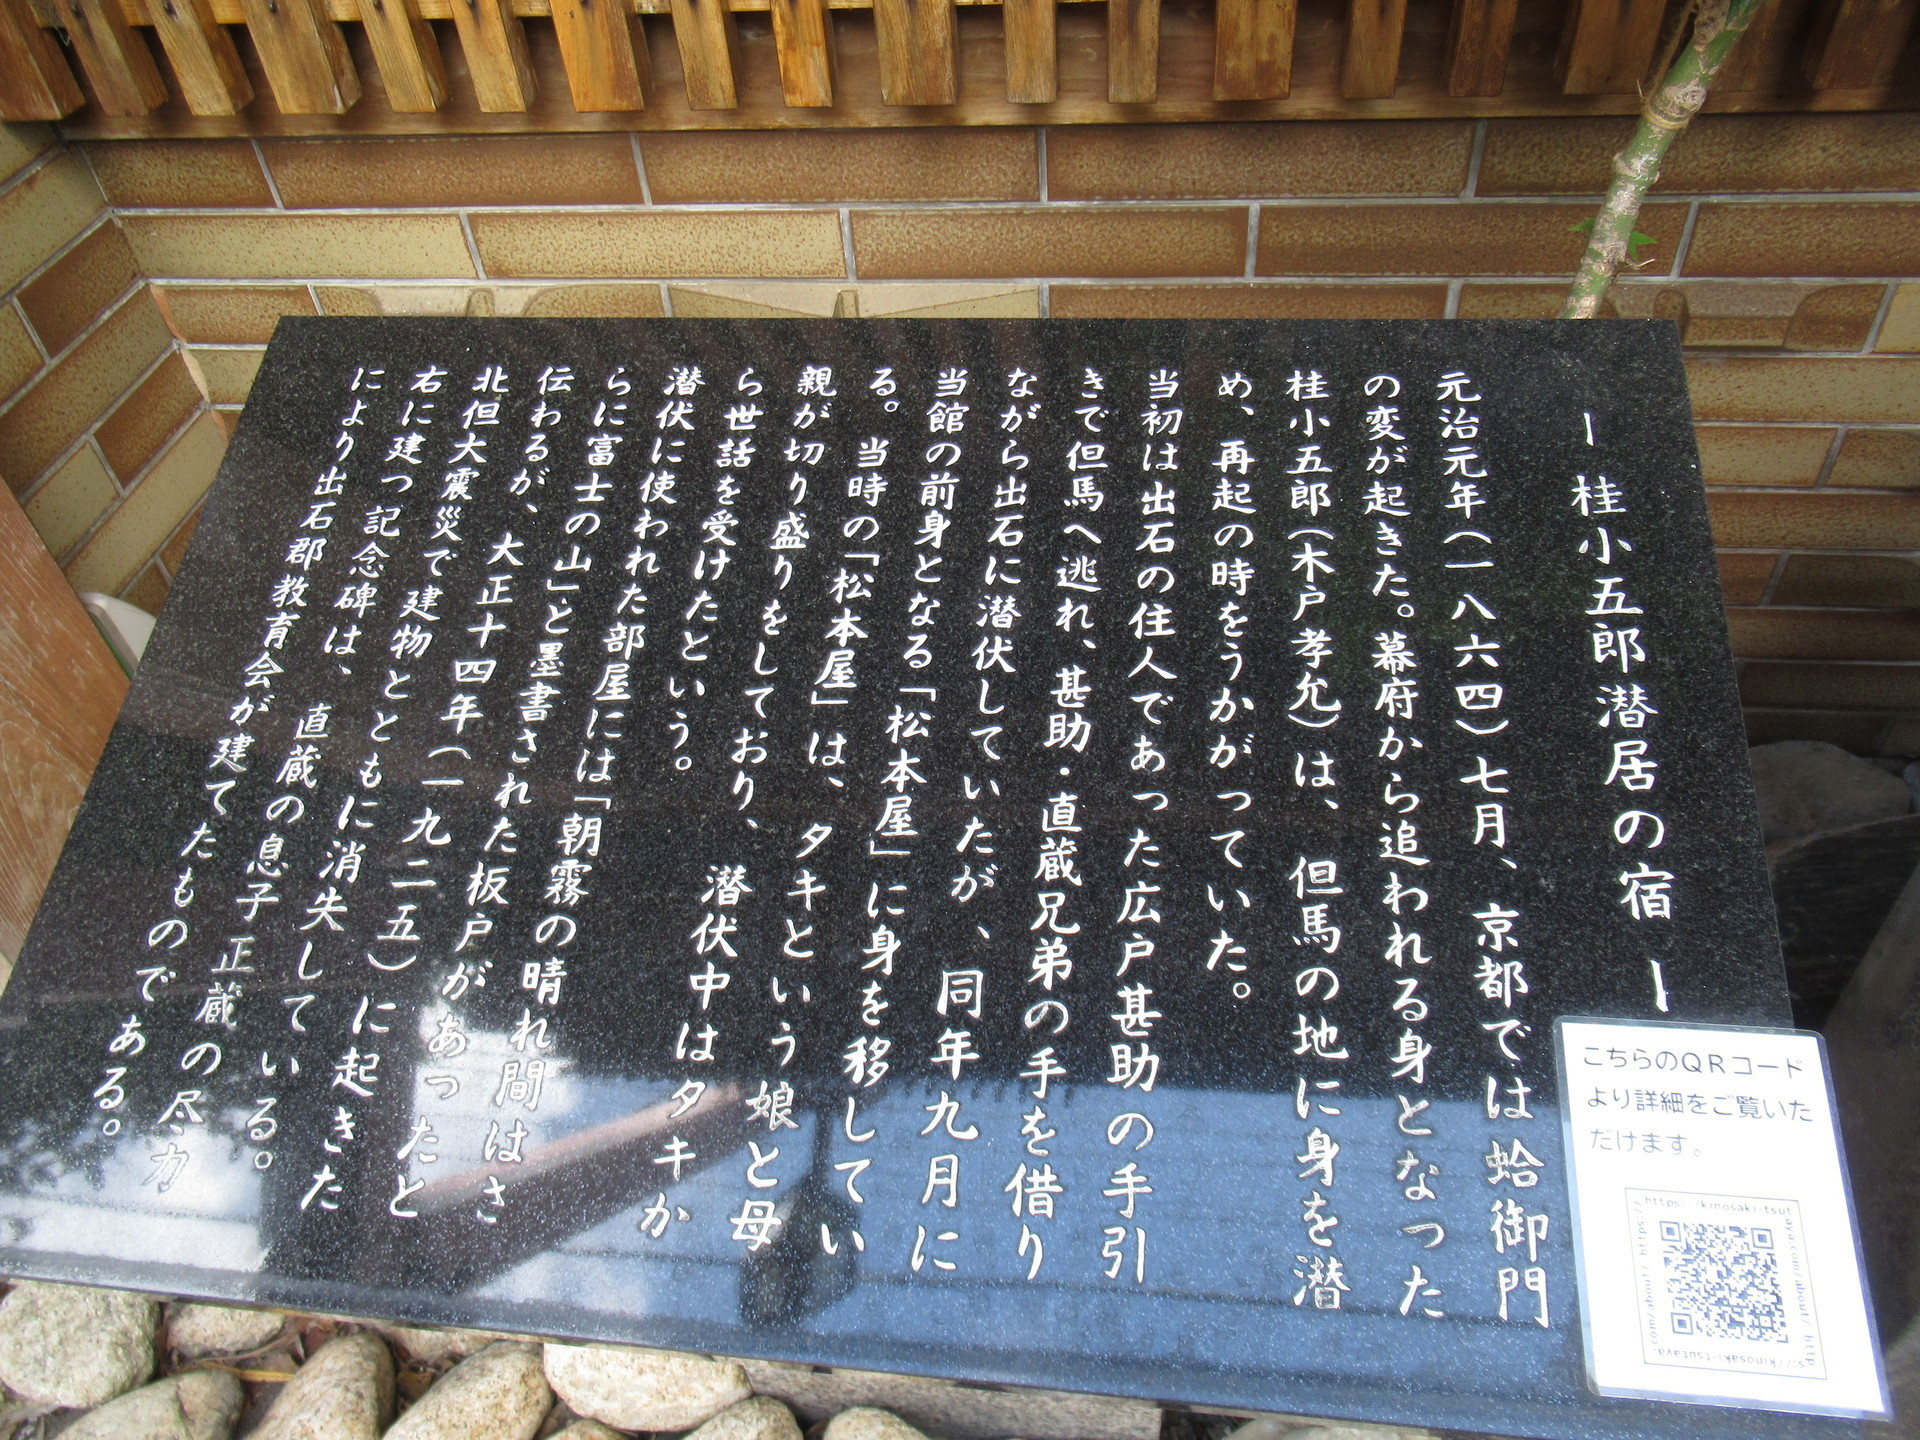 ー桂小五郎潜居の宿ー
元治元年（一八六四）七月、京都では蛤御門
の変が起きた。幕府から追われる身となった
桂小五郎（木戸孝允）は、但馬の地に身を潜
め、再起の時をうかがっていた。
当初は出石の住人であった広戸甚助の手引
きで但馬へ逃れ、甚助・直蔵兄弟の手を借り
ながら出石に潜伏していたが、同年九月に
当館の前身となる「松本屋」に身を移してい
る。当時の「松本屋」は、タキという娘と母
親が切り盛りをしており、潜伏中はタキか
ら世話を受けたという。
潜伏に使われた部屋には「朝霧の晴れ間はさ
らに富士の山」と墨書された板戸があったと
伝わるが、大正十四年（一九二五）に起きた
北但大震災で建物とともに消失している。
右に建つ記念碑は、直蔵の息子正蔵の尽力
により出石郡教育会が建てたものである。
こちらのQRコード
より詳細をご覧いた
だけます。
https://kinosaki-tsutaya.com/about/ https://kinosaki-tsutaya.com/about/ https://